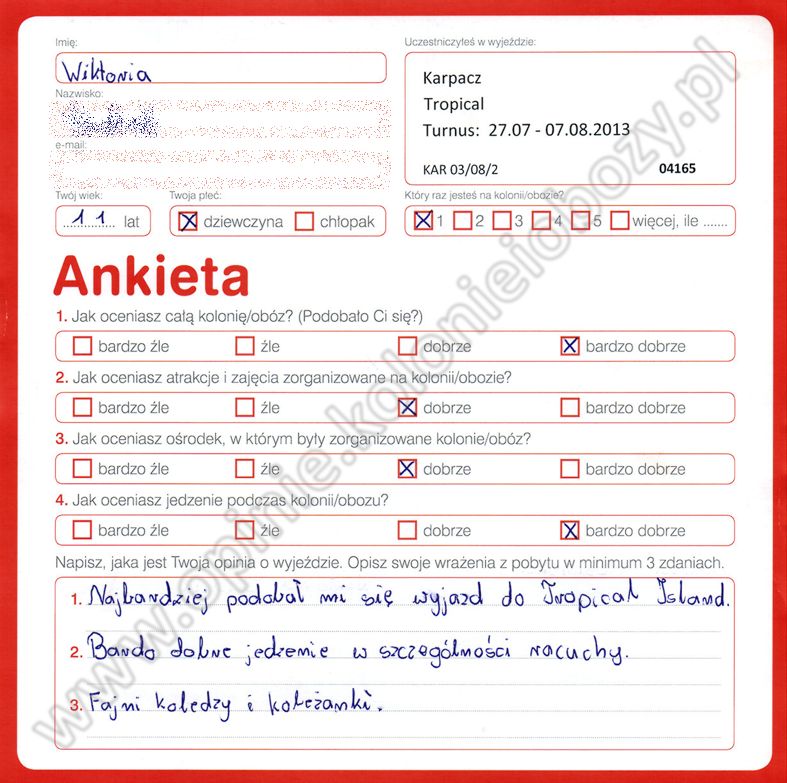 Imię:
Wiktoria
Nazwisko:
e-mail:
Uczestniczyłeś w wyjeździe:
Karpacz
Tropical
Turnus: 27.07 - 07.08.2013
KAR 03/08/2 04165
Twój wiek: Twoja płeć: Który raz jesteś na kolonii/obozie?
11 lat dziewczyna chłopak 1 2 3 4 5 więcej, ile .......
Ankieta
1. Jak oceniasz całą kolonię/obóz? (Podobało Ci się?)
bardzo źle źle dobrze bardzo dobrze
2. Jak oceniasz atrakcje i zajęcia zorganizowane na kolonii/obozie?
bardzo źle źle dobrze bardzo dobrze
3. Jak oceniasz ośrodek, w którym były zorganizowane kolonie/obóz?
bardzo źle źle dobrze bardzo dobrze
4. Jak oceniasz jedzenie podczas kolonii/obozu?
bardzo źle źle dobrze bardzo dobrze
Napisz, jaka jest Twoja opinia o wyjeździe. Opisz swoje wrażenia z pobytu w minimum 3 zdaniach.
1. Najbardziej podobał mi się wyjazd do Tropical Island.
2. Bardo dobre jedzenie w szczególności racuchy.
3. Fajni koledzy i koleżanki.
www.opinie.kolonieiobozy.pl